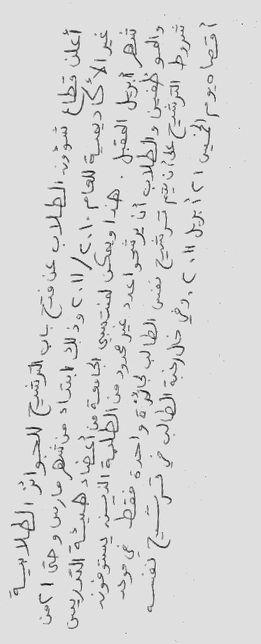 أعلن قطاع شؤون الطلاب عن فتح باب الترشيح للجوائز الطلابية
غير الأكاديمية للعام ٢٠١١/٢٠١٠ وذلك ابتداء من شهر مارس وحتى ٢١ من
شهر أبريل المقبل. هذا ويمكن لمنتسبي الجامعة من أعضاء هيئة التدريس
والموظفين والطلاب أن يرشحوا عدد غير محدود من الطلبة الذين يستوفون
شروط الترشيح على أن يتم ترشيح نفس الطالب لجائزة واحدة فقط في موعد
أقصاه يوم الخميس ٢١ أبريل ٢٠١١. وفي حال رغبة الطالب في ترشيح نفسه